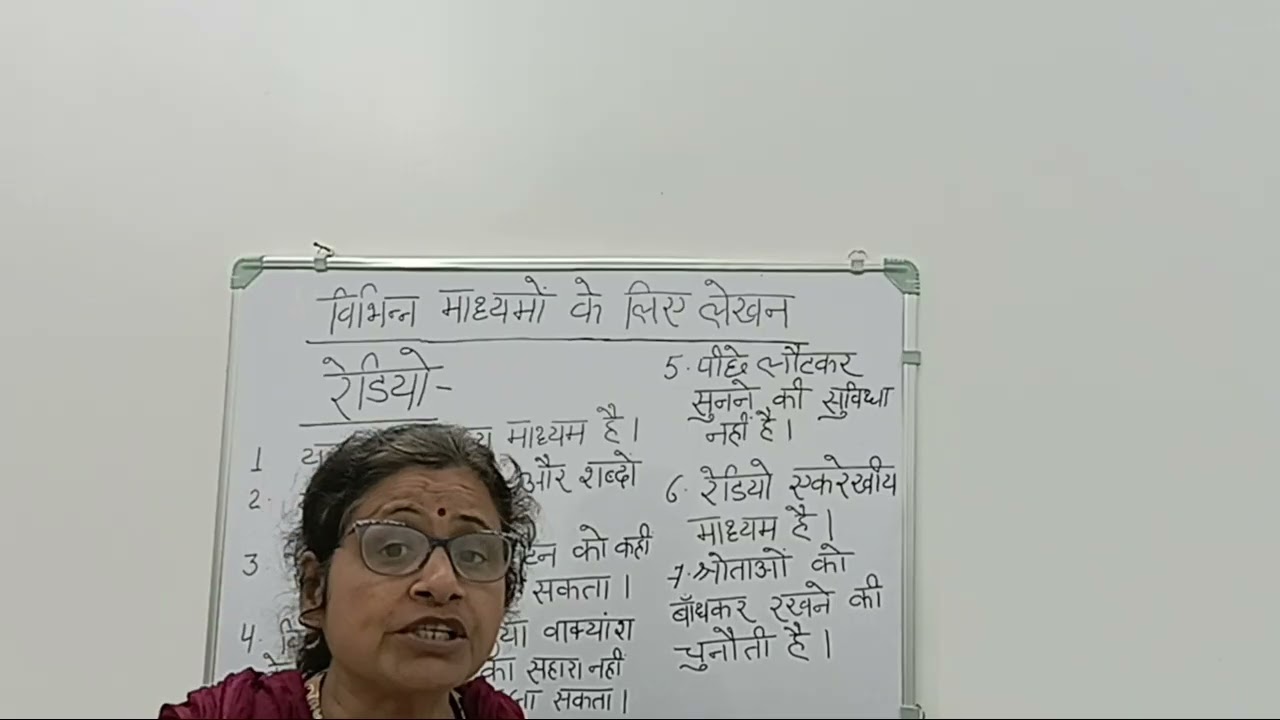 विभिन्न माध्यमों के लिए लेखन
रेडियो-
1 माध्यम है।
2. और शब्दों
3 को कही
सकता।
4. या वाक्यांश
का सहारा नहीं
सकता।
5. पीछे लौटकर
सुनने की सुविधा
नहीं है।
6. रेडियो एकरेखीय
माध्यम है।
7. श्रोताओं को
बाँधकर रखने की
चुनौती है।